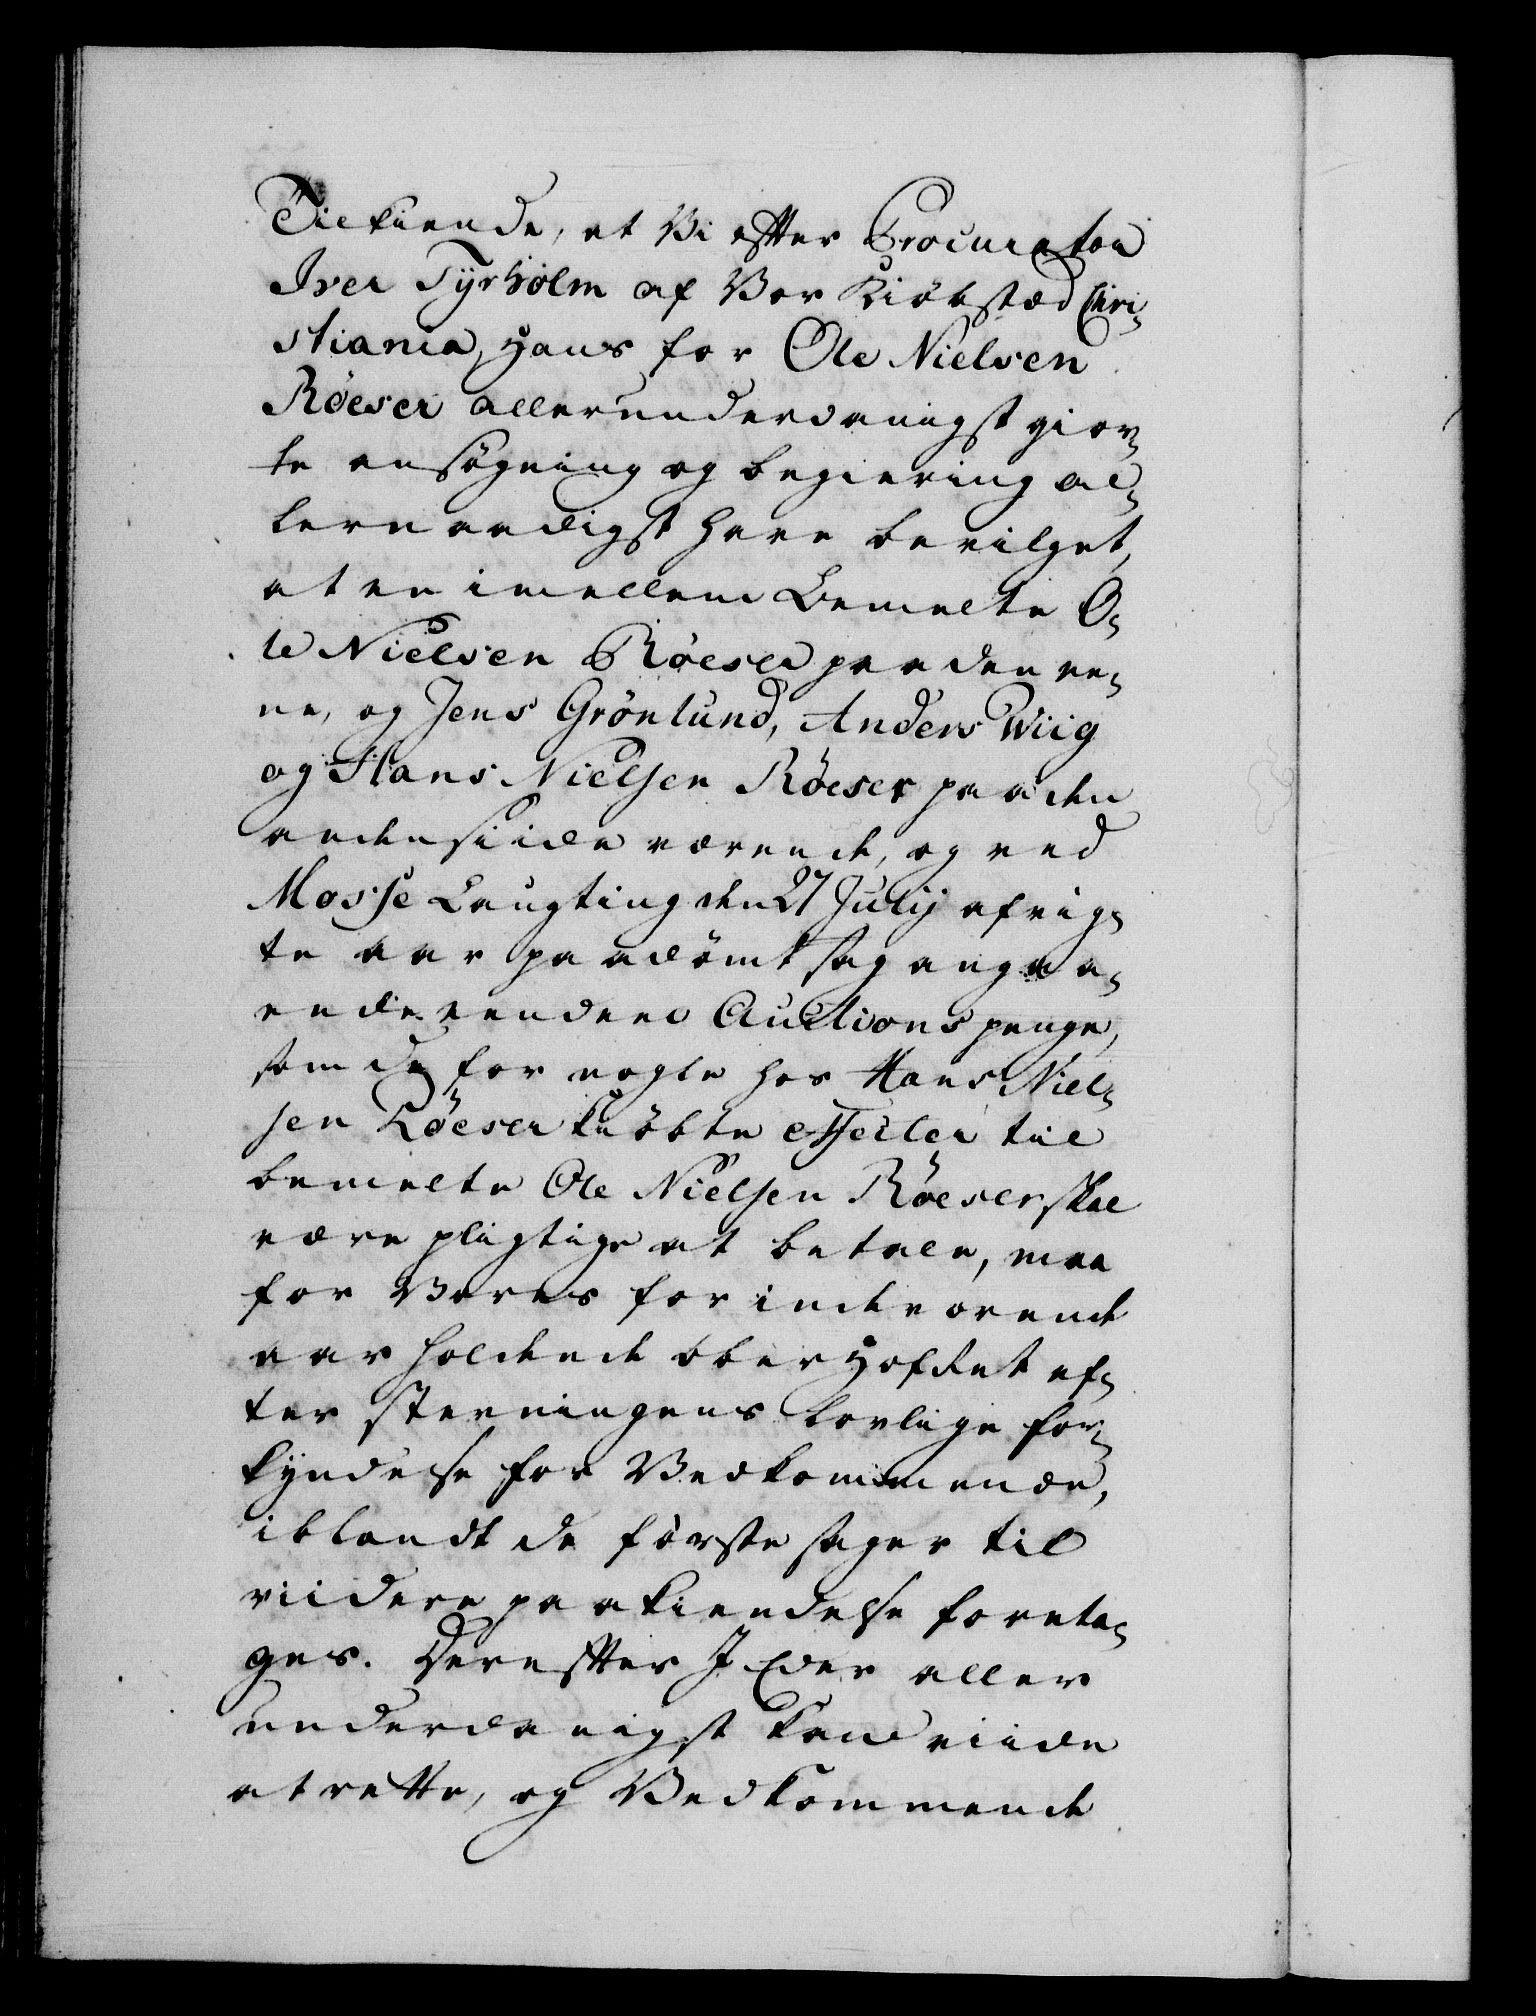 Tilkiende, at Vi efter Procurator
Iver Tyrholm af Vor Kiöbstæd Chri-
stiania, Hans for Ole Nielsen
Röeser allerunderdanigst gior-
te ansögning og begiering al-
lernaadigst have bevilget,
at en imellem Bemelte O-
le Nielsen Röeser paa den ee-
ne, og Jens Grönlund, Anders Wiig
og Hans Nielsen Röeser paa den
anden siide værende, og ved
Mosse Laugting den 27 Julij afvig-
te aar paadömt sag angaa-
ende Auctions penge,
som de for nogle hos Hans Niel-
sen Röeser kiöbte effecter til
bemelte Ole Nielsen Röeser skal
være pligtige at betale, maa
for Vores for indeværende
aar holdende oberhofret ef-
ter stevningens lovlige for-
kyndelse for Vedkommende,
iblandt de förste sager til
viidere paakiendelse foreta-
ges. Derefter I Eder aller
underdanigst kand viide
at rette, og Vedkommende